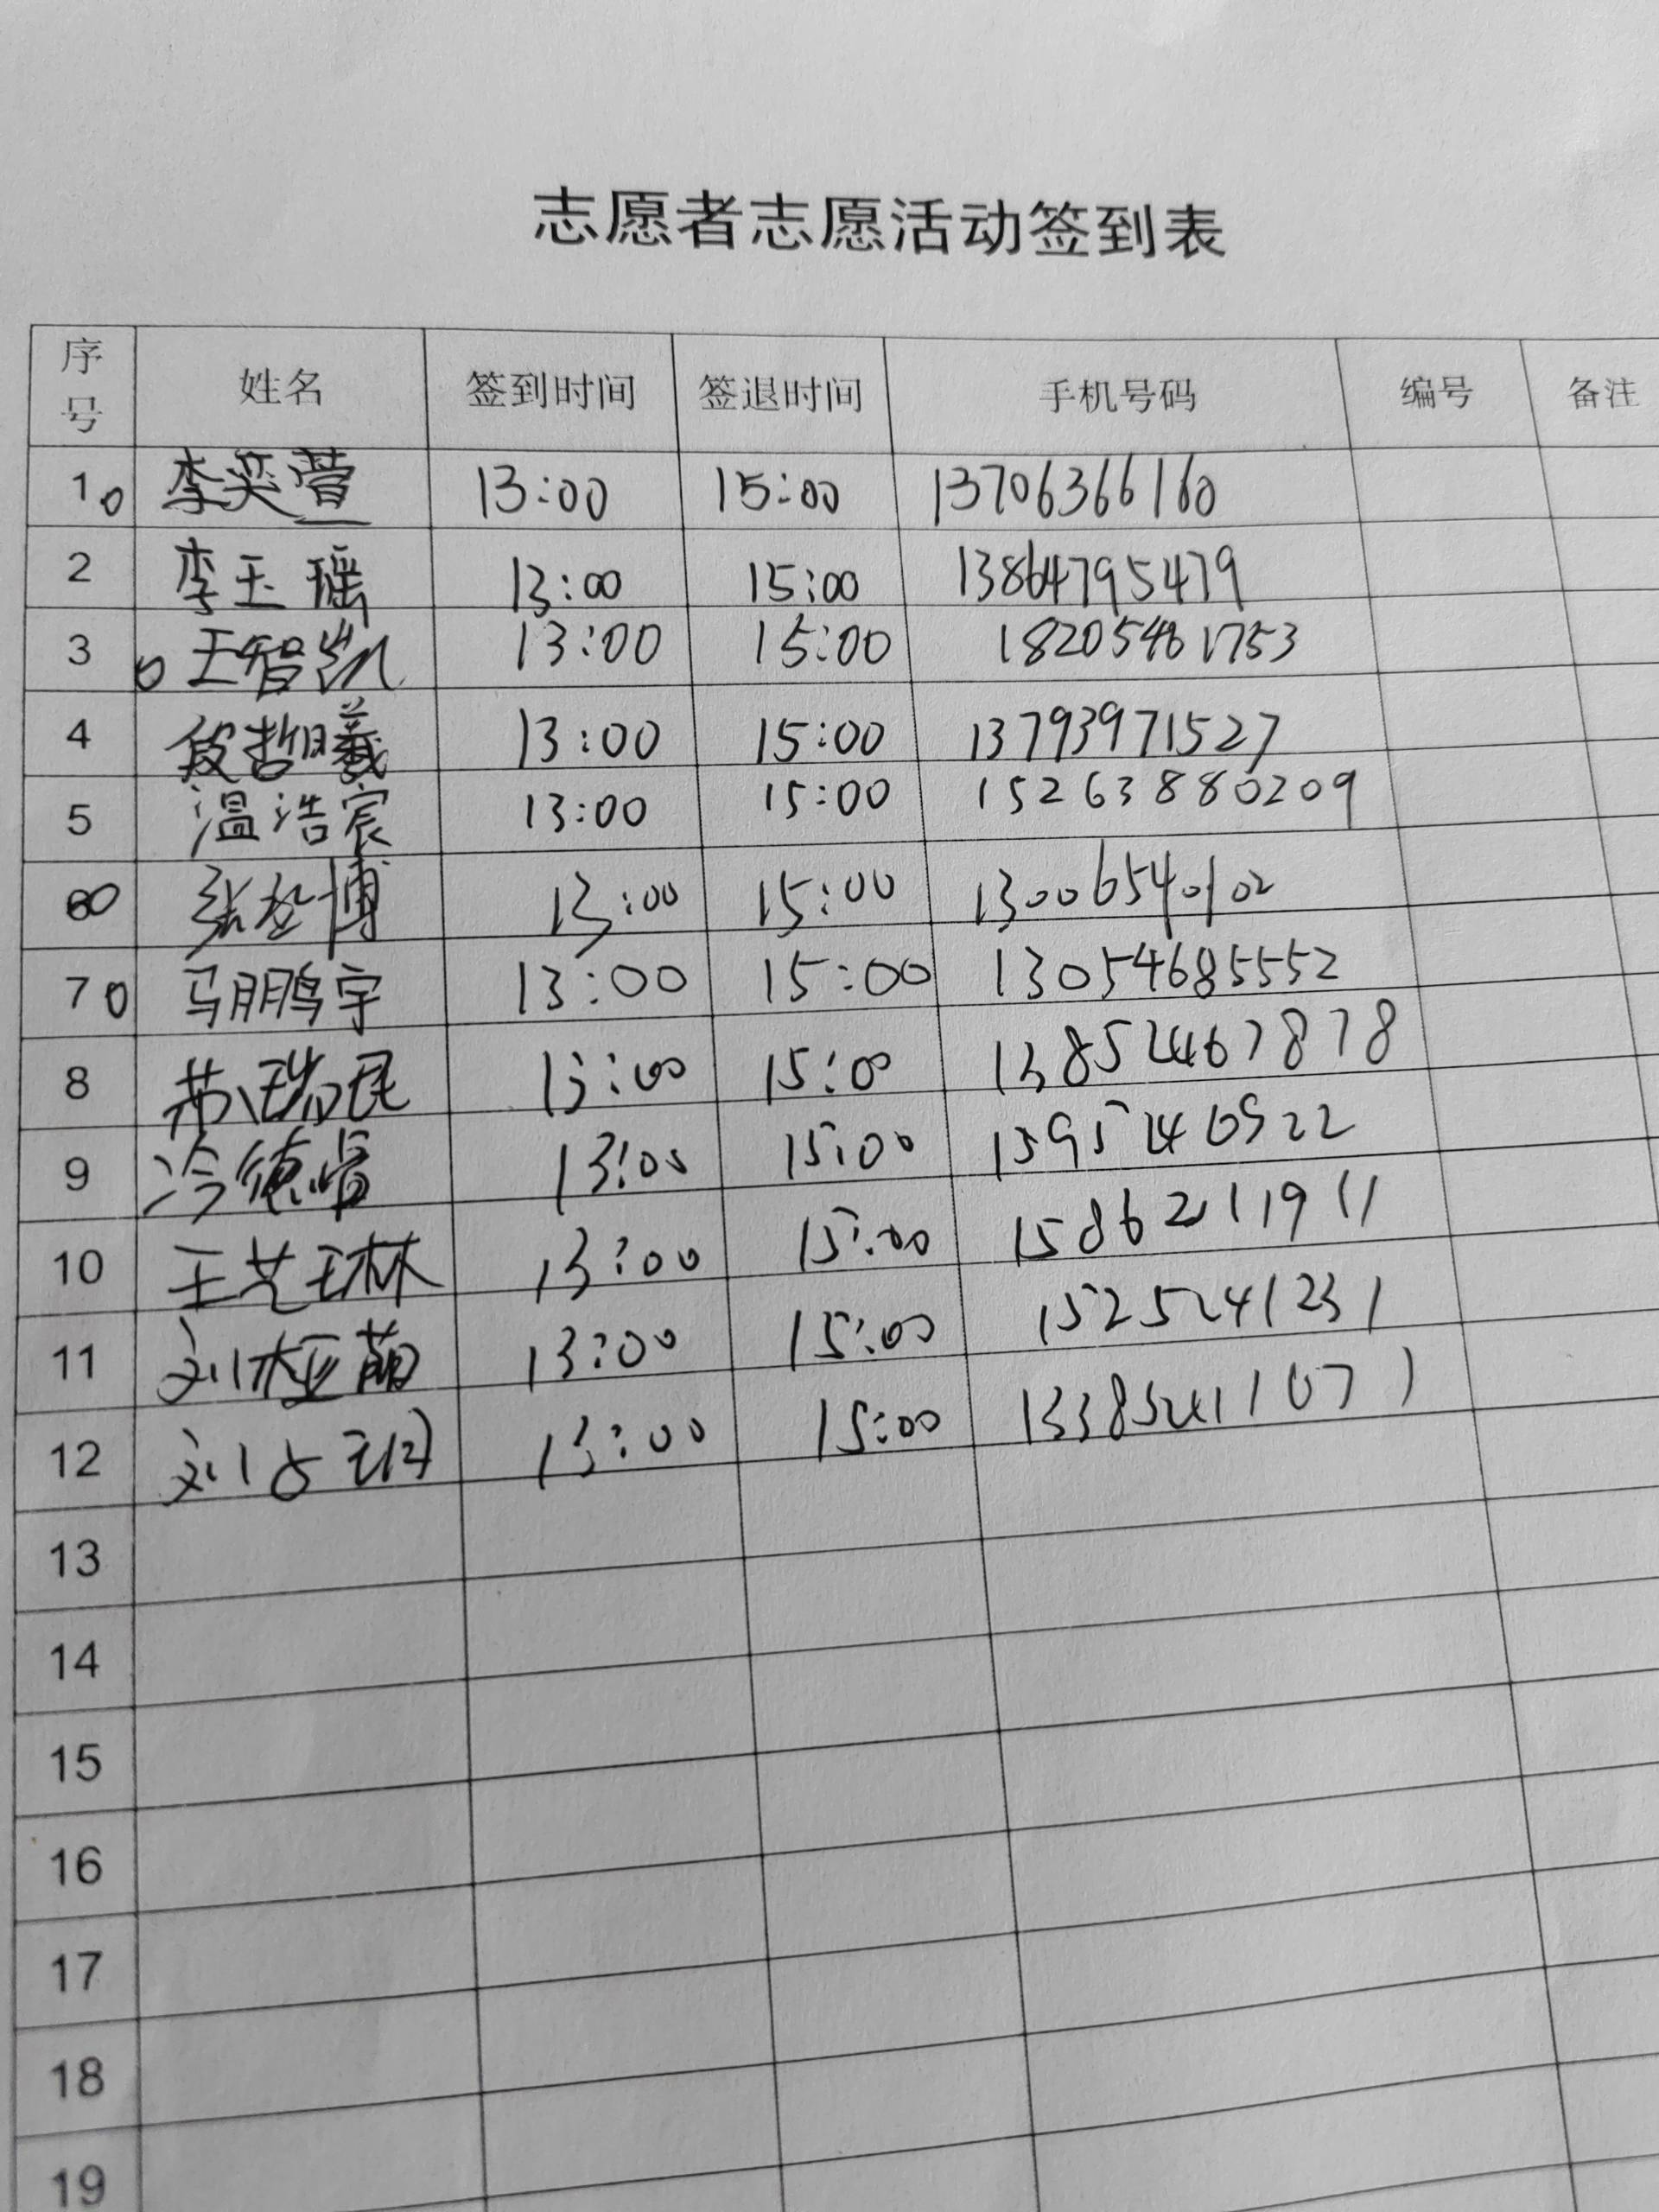 志愿者志愿活动签到表
序号 姓名 签到时间 签退时间 手机号码 编号 备注
1 李奕萱 13:00 15:00 13706366160
2 李玉瑶 13:00 15:00 13864795479
3 王智凯 13:00 15:00 18205461753
4 段哲曦 13:00 15:00 13793971527
5 温浩宸 13:00 15:00 15263880209
6 张 博 13:00 15:00 13006540102
7 马鹏宇 13:00 15:00 13054685552
8 13:00 15:00 13852467878
9 冷德 13:00 15:00
10 王艺琳 13:00 15:00 15862111911
11 刘桠萌 13:00 15:00 1525241231
12 刘 13:00 15:00
13
14
15
16
17
18
19